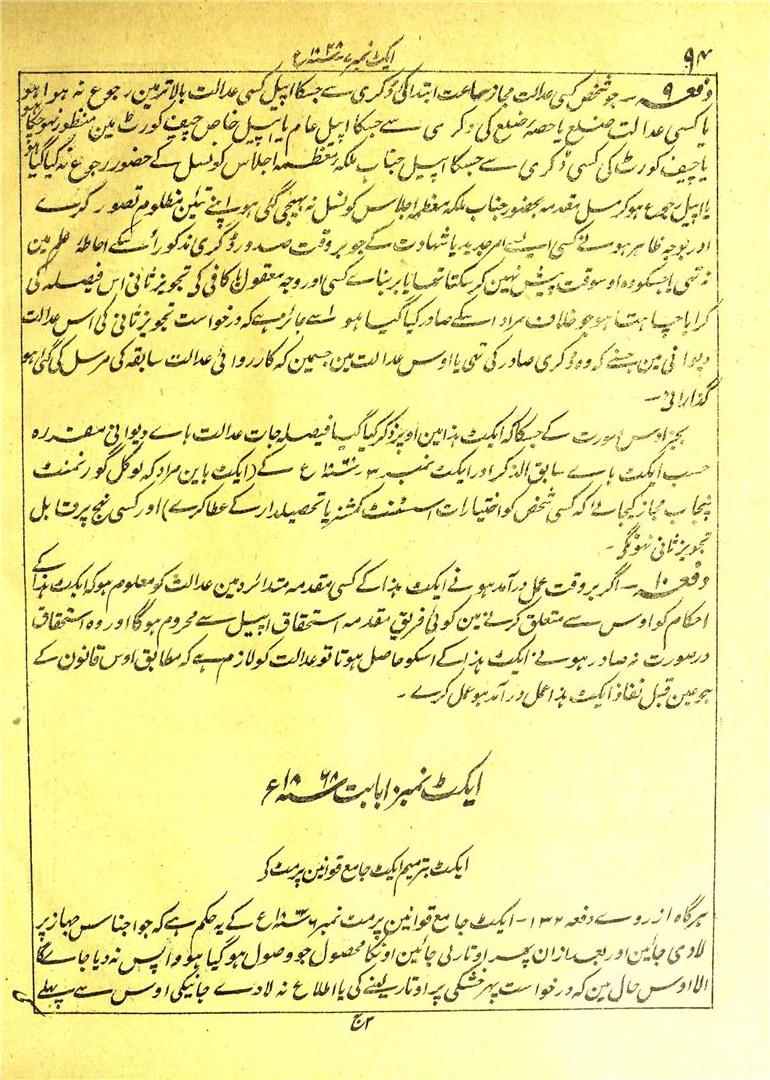 ۹۴
ایکٹ نمبر ۷ سنہ ۱۸۶۸ ع
دفعہ ۹ ۔ جو شخص کسی عدالت مجاز سماعت ابتدائی کی ڈگری سے جسکا اپیل کسی عدالت بالاتر مین رجوع نہ ہوا ہو
یا کسی عدالت ضلع یا حصہ ضلع کی ڈگری سے جسکا اپیل عام یا اپیل خاص چیف کورٹ مین منظور نہو چکا ہو
یا چیف کورٹ کی کسی ڈگری سے جسکا اپیل جناب ملکہ معظمہ اجلاس کونسل کے حضور رجوع نہ کیا گیا ہو
یا اپیل رجوع ہو کر مسل مقدمہ بحضور جناب ملکہ معظمہ اجلاس کونسل نہ بھیجی گئی ہو اپنے تئین مظلوم تصور کرے
اور بوجہ ظاہر ہونے کسی ایسے امر جدید یا شہادت کے جو بر وقت صدور ڈگری مذکور اُسکے احاطۂ علم مین
نہ تھی یا جسکو وہ اوسوقت پیش نہین کر سکتا تھا یا بر بناے کسی اور وجہ معقول یا کافی کی تجویز ثانی اس فیصلہ کی
کرایا چاہتا ہو جو خلاف مراد اسکے صادر کیا گیا ہو اسے جائز ہے کہ درخواست تجویز ثانی کی اس عدالت
دیوانی مین جسنے کہ وہ ڈگری صادر کی تھی یا اوس عدالت مین جسمین کہ کارروائی عدالت سابقہ کی مرسل کی گئی ہو
گذرانے ۔
بجز اوس صورت کے جسکا کہ ایکٹ ہذا مین اوپر ذکر کیا گیا فیصلہ جات عدالت ہاے دیوانی مقررہ
حسب ایکٹ ہاے سابق الذکر اور ایکٹ نمبر ۳ سنہ ع کے (ایکٹ باین مراد کہ لوکل گورنمنٹ
پنجاب مجاز کیجائے کہ کسی شخص کو اختیارات اسسٹنٹ کمشنر یا تحصیلدار کے عطا کرے) اور کسی نہج پر قابل
تجویز ثانی نہونگے ۔
دفعہ ۱۰ ۔ اگر بر وقت عمل درآمد ہونے ایکٹ ہذا کے کسی مقدمہ متدائرہ مین عدالت کو معلوم ہو کہ ایکٹ ہذا کے
احکام کو اوس سے متعلق کرنے مین کوئی فریق مقدمہ استحقاق اپیل سے محروم ہوگا اور وہ استحقاق
در صورت نہ صادر ہونے ایکٹ ہذا کے اسکو حاصل ہوتا تو عدالت کو لازم ہے کہ مطابق اوس قانون کے
جو عین قبل نفاذ ایکٹ ہذا عمل درآمد ہو عمل کرے ۔
ایکٹ نمبر ۱۰ بابت سنہ ۱۸۶۸ ع
ایکٹ بترمیم ایکٹ جامع قوانین پرمٹ کے
ہرگاہ از روے دفعہ ۱۳۲ ۔ ایکٹ جامع قوانین پرمٹ نمبر ۶ سنہ ۱۸۶۳ ع کے یہ حکم ہے کہ جو اجناس جہاز پر
لادی جائین اور بعد ازان پھر اوتارلی جائین اونکا محصول جو وصول ہو گیا ہو واپس نہ دیا جاے گا
الا اوس حال مین کہ درخواست پھر خشکی پر اوتار لینے کی یا اطلاع نہ لادے جانیکی اوس سے پہلے
۳ ج